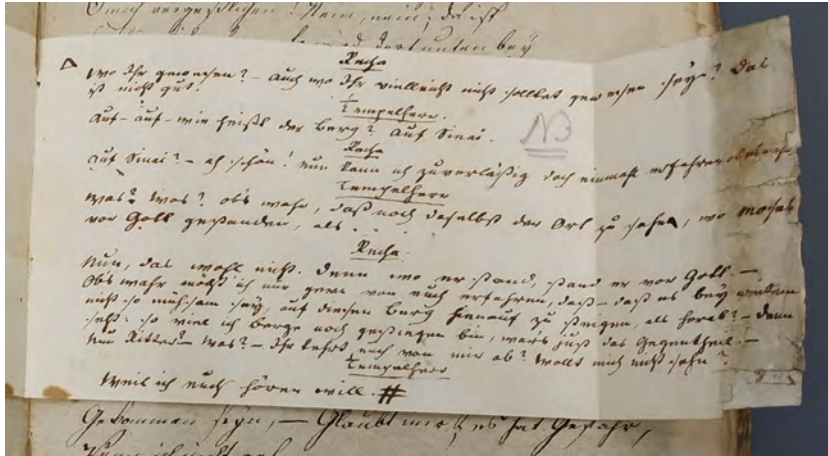 O mich vergeßlichen! Nein, nein; da ist
dort unten bey
Recha
Wo Ihr gewesen? – Auch wo Ihr vielleicht nicht solltet gewesen seyn? Das
ist nicht gut.
Tempelherr.
Auf – auf – wie heißt der Berg? Auf Sinai.
NB
Recha
Auf Sinai? – ah schön! nun kann ich zuverläßig doch einmahl erfahren ob es wahr,
Tempelherr
Was? was? ob's wahr, daß noch daselbst der Ort zu sehen, wo Moses
vor Gott gestanden, als . .
Recha.
Nun, das wohl nicht. Denn wo er stand, stand er vor Gott. –
Ob's wahr möcht' ich nur gern von euch erfahren, daß – daß es bey weitem
nicht so mühsam sey, auf diesen Berg hinauf zu steigen, als herab? – denn
seht: so viel ich Berge noch gestiegen bin, war's just das Gegentheil. –
Nun Ritter – Was? – Ihr kehrt euch von mir ab? wollt mich nicht sehn?
Tempelherr
Weil ich euch hören will. #
Gekommen seyn, – Glaubt mir, es hat Gefahr,
Wenn ich nicht